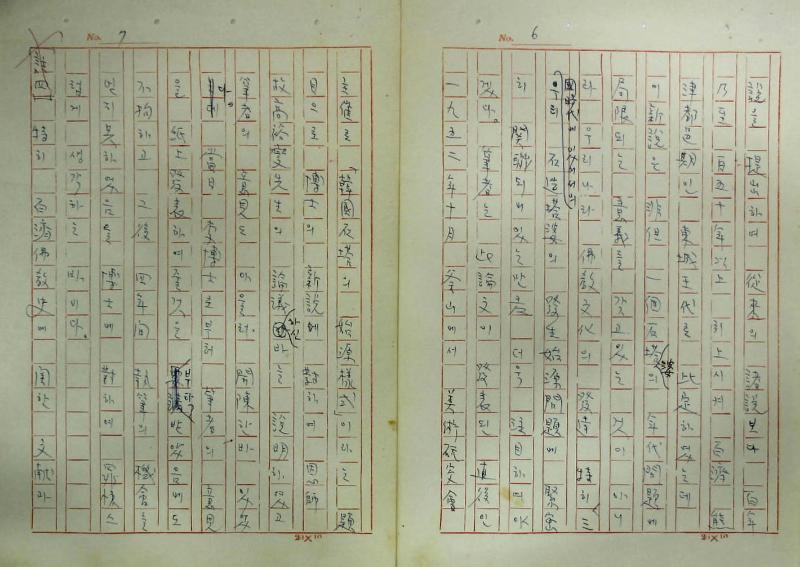 No. 6
說을 提出하며 從來의 諸說보다 百年
乃至 百五十年 以上 上시켜 百濟 熊
津都邑期인 東城王代로 比定하였는데
이 新說은 非但 一個石塔의 年代問題에
局限되는 意義를 갖고 있는 것이 아니
라 우리나라 佛敎文化의 發達 特히 三
國時代에 있어서의
우리 石造塔婆의 發生始源問題에 緊密
히 關聯되어 있는 만큼 더욱 注目하여야
겠다. 筆者는 此論文이 發表된 直後인
一九五二年十月 釜山에서 美術硏究會
20×10
No. 7
主催로 「韓國石塔의 始源樣式」이라는 題
目으로 博士의 新說에 對하여 恩師
故高裕燮先生의 論議하신 바를 說明하였고
筆者의 意見도 아울러 開陳한 바 있었
다. 當日 李博士로부터 筆者의 意見
을 紙上發表하여 줄 것을 부탁 받았음에도
不拘하고 그 後 四年間 執筆의 機會를
얻지 못하였음을 博士에 對하여 罪悚스
럽게 생각하는 바이다.
特히 百濟佛敎史에 關한 文獻과
20×10